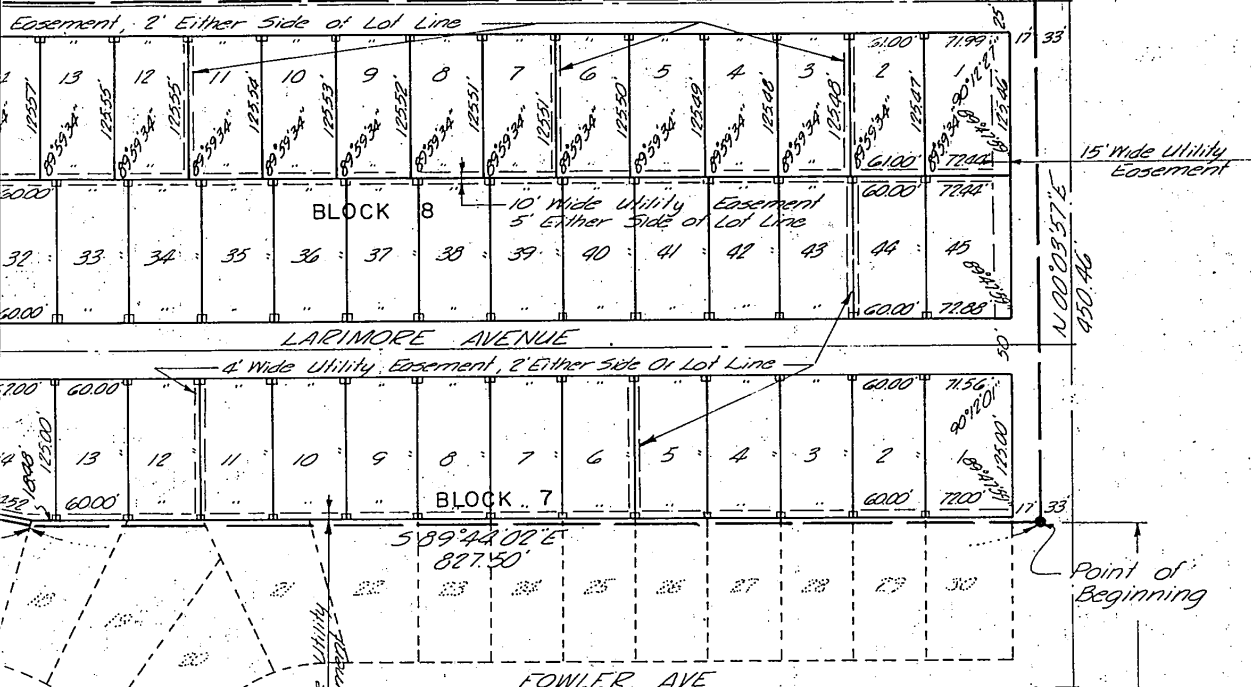 Easement, 2' Either Side of Lot Line
61.00' 71.99' 17' 33' 25'
13 12 11 10 9 8 7 6 5 4 3 2 1
125.57' 125.55' 125.55' 125.54' 125.53' 125.52' 125.51' 125.51' 125.50' 125.49' 125.48' 125.48' 125.47' 125.46'
90°12'27"
89°59'34" 89°59'34" 89°59'34" 89°59'34" 89°59'34" 89°59'34" 89°59'34" 89°59'34" 89°59'34" 89°59'34" 89°59'34" 89°59'34" 89°59'34"
61.00' 72.44'
15' Wide Utility
Easement
60.00' 60.00' 72.44'
BLOCK 8
10' Wide Utility Easement
5' Either Side of Lot Line
32 33 34 35 36 37 38 39 40 41 42 43 44 45
89°47'59"
60.00' 60.00' 72.88'
N 00°03'57" E
450.46'
LARIMORE AVENUE
50'
4' Wide Utility Easement, 2' Either Side Or Lot Line
60.00' 60.00' 71.56'
90°12'01"
125.00' 125.00'
13 12 11 10 9 8 7 6 5 4 3 2 1
89°47'59"
60.00' 60.00' 72.00'
BLOCK 7
17' 33'
S 89°44'02" E
827.50'
Point of
Beginning
21 22 23 24 25 26 27 28 29 30
Utility
FOWLER AVE